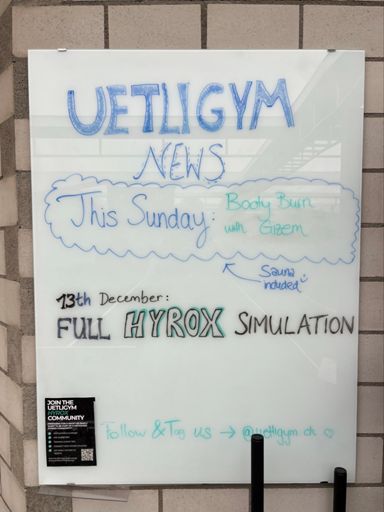 UETLIGYM
NEWS
This Sunday: Booty Burn
with Gizem
Sauna
included
13th December:
FULL HYROX SIMULATION
JOIN THE
UETLIGYM
HYROX
COMMUNITY
Follow & Tag us → @uetligym.ch ♡